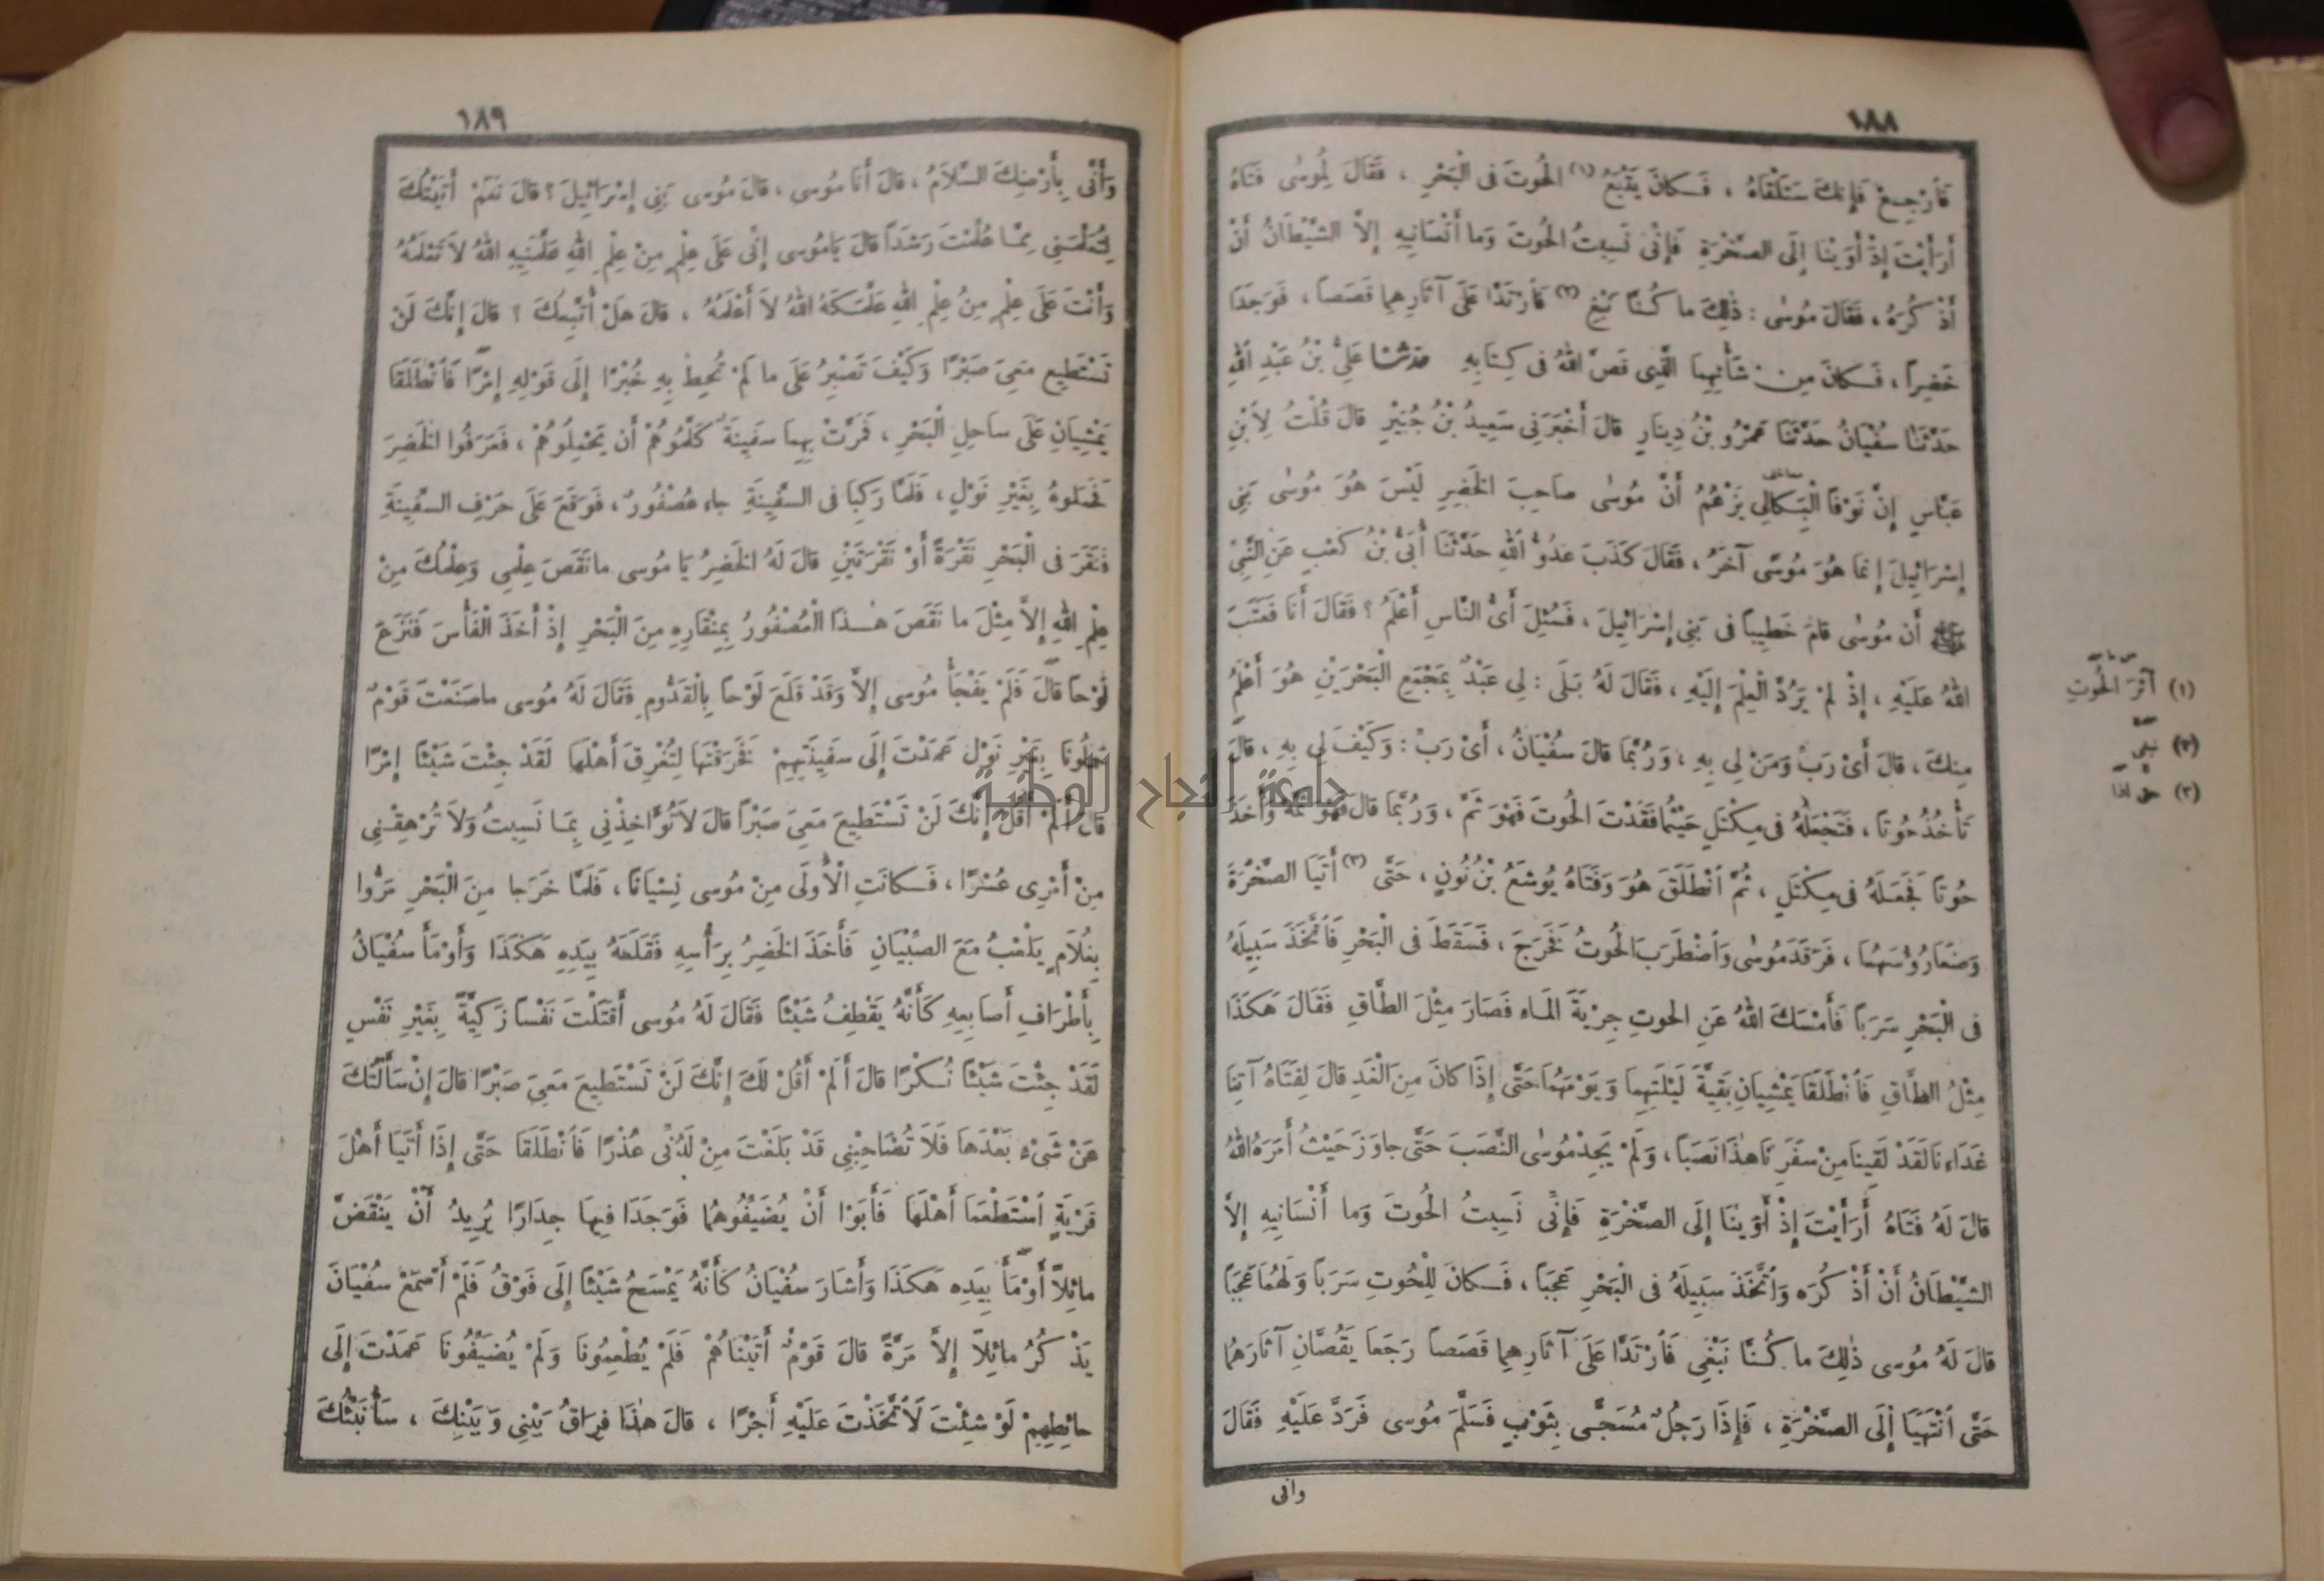 ١٨٨
فَارْجِعْ فَإِنَّكَ سَتَلْقَاهُ ، فَكَانَ يَتْبَعُ (١) الْحُوتَ فِى الْبَحْرِ ، فَقَالَ لِمُوسٰى فَتَاهُ
أَرَأَيْتَ إِذْ أَوَيْنَا إِلَى الصَّخْرَةِ فَإِنِّى نَسِيتُ الْحُوتَ وَما أَنْسَانِيهِ إِلاَّ الشَّيْطَانُ أَنْ
أَذْكُرَهُ ، فَقَالَ مُوسٰى : ذٰلِكَ ما كُنَّا نَبْغِ (٢) فَارْتَدَّا عَلَى آثَارِهِما قَصَصاً ، فَوَجَدَا
خَضِراً ، فَكانَ مِنْ شَأْنِهِما الَّذِى قَصَّ اللهُ فى كِتَابِهِ حدثنا عَلِىُّ بْنُ عَبْدِ اللهِ
حَدَّثَنَا سُفْيَانُ حَدَّثَنَا عَمْرُو بْنُ دِينَارٍ قالَ أَخْبَرَنِى سَعِيدُ بْنُ جُبَيْرٍ قالَ قُلْتُ لِابْنِ
عَبَّاسٍ إِنَّ نَوْفًا الْبِكَالِيَّ يَزْعُمُ أَنَّ مُوسٰى صَاحِبَ الخَضِرِ لَيْسَ هُوَ مُوسٰى بَنِي
إِسْرَائِيلَ إِنَّمَا هُوَ مُوسًى آخَرُ ، فَقَالَ كَذَبَ عَدُوُّ اللهِ حَدَّثَنَا أُبَىُّ بْنُ كَعْبٍ عَنِ النَّبِيِّ
ﷺ أَن مُوسٰى قامَ خَطِيباً فى بَنِي إِسْرَائِيلَ ، فَسُئِلَ أَىُّ النَّاسِ أَعْلَمُ ؟ فَقَالَ أَنَا فَعَتَبَ
اللهُ عَلَيْهِ ، إِذْ لَمْ يَرُدَّ الْعِلْمَ إِلَيْهِ ، فَقَالَ لَهُ بَلَى : لِي عَبْدٌ بِمَجْمَعِ الْبَحْرَيْنِ هُوَ أَعْلَمُ
مِنكَ ، قالَ أَىْ رَبِّ وَمَنْ لِى بِهِ ، وَرُبَّمَا قالَ سُفْيَانُ ، أَىْ رَبِّ : وَكَيْفَ لِى بِهِ ، قالَ
تَأْخُذُ حُوتًا ، فَتَجْعَلُهُ فى مِكْتَلٍ حَيْثُمَا فَقَدْتَ الْحُوتَ فَهْوَ ثَمَّ ، وَرُبَّمَا قالَ فَهْوَ ثَمَّهْ وَأَخَذَ
حُوتًا فَجَعَلَهُ فى مِكْتَلٍ ، ثُمَّ انْطَلَقَ هُوَ وَفَتَاهُ يُوشَعُ بْنُ نُونٍ ، حَتَّى (٣) أَتَيَا الصَّخْرَةَ
وَضَعَا رُؤُسَهُمَا ، فَرَقَدَ مُوسٰى وَاضْطَرَبَ الْحُوتُ فَخَرَجَ ، فَسَقَطَ فى الْبَحْرِ فَاتَّخَذَ سَبِيلَهُ
فى الْبَحْرِ سَرَباً فَأَمْسَكَ اللهُ عَنِ الحوتِ جِرْيَةَ المَاءِ فَصَارَ مِثْلَ الطَّاقِ فَقَالَ هَكَذَا
مِثْلُ الطَّاقِ فَانْطَلَقَا يَمْشِيَانِ بَقِيَّةَ لَيْلَتِهِما وَيَوْمَهُمَا حَتَّى إِذَا كانَ مِنَ الْغَدِ قالَ لِفَتَاهُ آتِنَا
غَدَاءنَا لَقَدْ لَقِينَا مِنْ سَفَرِنَا هٰذَا نَصَباً ، وَلَمْ يَجِدْ مُوسٰى النَّصَبَ حَتَّى جاوَزَ حَيْثُ أَمَرَهُ اللهُ
قالَ لَهُ فَتَاهُ أَرَأَيْتَ إِذْ أَوَيْنَا إِلَى الصَّخْرَةِ فَإِنِّى نَسِيتُ الْحُوتَ وَما أَنْسَانِيهِ إِلاَّ
الشَّيْطَانُ أَنْ أَذْكُرَه وَاتَّخَذَ سَبِيلَهُ فى الْبَحْرِ عَجَباً ، فَكانَ لِلْحُوتِ سَرَباً وَلَهُمَا عَجَباً
قالَ لَهُ مُوسى ذٰلِكَ ما كُنَّا نَبْغِي فَارْتَدَّا عَلَى آثَارِهِما قَصَصاً رَجَعَا يَقُصَّانِ آثَارَهُما
حَتَّى انْتَهَيَا إِلَى الصَّخْرَةِ ، فَإِذَا رَجُلٌ مُسَجًّى بِثَوْبٍ فَسَلَّمَ مُوسى فَرَدَّ عَلَيْهِ فَقَالَ
وأنى
(١) أَثَرَ الْحُوتِ
(٢) نبغى
(٣) حتى إذا
١٨٩
وَأَنَّى بِأَرْضِكَ السَّلاَمُ ، قالَ أَنَا مُوسى ، قالَ مُوسى بَنِي إِسْرَائِيلَ ؟ قالَ نَعَمْ أَتَيْتُكَ
لِتُعَلِّمَنِي مِمَّا عُلِّمْتَ رَشَدًا قالَ يَامُوسى إِنِّى عَلَى عِلْمٍ مِنْ عِلْمِ اللهِ عَلَّمَنِيهِ اللهُ لاَ تَعْلَمُهُ
وَأَنْتَ عَلَى عِلْمٍ مِنْ عِلْمِ اللهِ عَلَّمَكَهُ اللهُ لاَ أَعْلَمُهُ ، قالَ هَلْ أَتَّبِعُكَ ؟ قالَ إِنَّكَ لَنْ
تَسْتَطِيعَ مَعِيَ صَبْرًا وَكَيْفَ تَصْبِرُ عَلَى ما لَمْ تُحِطْ بِهِ خُبْرًا إِلَى قَوْلِهِ إِمْرًا فَانْطَلَقَا
يَمْشِيَانِ عَلَى ساحِلِ الْبَحْرِ ، فَمَرَّتْ بِهِما سَفِينَةٌ كَلَّمُوهُمْ أَن يَحْمِلُوهُمْ ، فَعَرَفُوا الخَضِرَ
فَحَمَلُوهُ بِغَيْرِ نَوْلٍ ، فَلَمَّا رَكِبَا فى السَّفِينَةِ جاء عُصْفُورٌ ، فَوَقَعَ عَلَى حَرْفِ السَّفِينَةِ
فَنَقَرَ فى الْبَحْرِ نَقْرَةً أَوْ نَقْرَتَيْنِ قالَ لَهُ الخَضِرُ يَا مُوسى ما نَقَصَ عِلْمِي وَعِلْمُكَ مِنْ
عِلْمِ اللهِ إِلاَّ مِثْلَ ما نَقَصَ هٰذَا الْعُصْفُورُ بِمِنْقَارِهِ مِنَ الْبَحْرِ إِذْ أَخَذَ الْفَأْسَ فَنَزَعَ
لَوْحاً قالَ فَلَمْ يَفْجَأْ مُوسى إِلاَّ وَقَدْ قَلَعَ لَوْحاً بِالْقَدُّومِ فَقَالَ لَهُ مُوسى ما صَنَعْتَ قَوْمٌ
حَمَلُونَا بِغَيْرِ نَوْلٍ عَمَدْتَ إِلَى سَفِينَتِهِمْ فَخَرَقْتَهَا لِتُغْرِقَ أَهْلَهَا لَقَدْ جِئْتَ شَيْئًا إِمْرًا
قالَ أَلَمْ أَقُلْ إِنَّكَ لَنْ تَسْتَطِيعَ مَعِيَ صَبْرًا قالَ لاَ تُؤَاخِذْنِي بِمَا نَسِيتُ وَلاَ تُرْهِقْنِي
مِنْ أَمْرِى عُسْرًا ، فَكانَتِ الْأُولَى مِنْ مُوسى نِسْيَانًا ، فَلَمَّا خَرَجا مِنَ الْبَحْرِ مَرُّوا
بِغُلاَمٍ يَلْعَبُ مَعَ الصِّبْيَانِ فَأَخَذَ الخَضِرُ بِرَأْسِهِ فَقَلَعَهُ بِيَدِهِ هَكَذَا وَأَوْمَأَ سُفْيَانُ
بِأَطْرَافِ أَصَابِعِهِ كَأَنَّهُ يَقْطِفُ شَيْئًا فَقَالَ لَهُ مُوسى أَقَتَلْتَ نَفْسًا زَكِيَّةً بِغَيْرِ نَفْسٍ
لَقَدْ جِئْتَ شَيْئًا نُكْرًا قالَ أَلَمْ أَقُلْ لَكَ إِنَّكَ لَنْ تَسْتَطِيعَ مَعِيَ صَبْرًا قالَ إِنْ سَأَلْتُكَ
عَنْ شَىْءٍ بَعْدَهَا فَلاَ تُصَاحِبْنِي قَدْ بَلَغْتَ مِنْ لَدُنِّى عُذْرًا فَانْطَلَقَا حَتَّى إِذَا أَتَيَا أَهْلَ
قَرْيَةٍ اسْتَطْعَمَا أَهْلَهَا فَأَبَوْا أَنْ يُضَيِّفُوهُما فَوَجَدَا فِيهَا جِدَارًا يُرِيدُ أَنْ يَنْقَضَّ
مائِلاً أَوْمَأَ بِيَدِهِ هَكَذَا وَأَشَارَ سُفْيَانُ كَأَنَّهُ يَمْسَحُ شَيْئًا إِلَى فَوْقُ فَلَمْ أَسْمَعْ سُفْيَانَ
يَذْكُرُ مائِلاً إِلاَّ مَرَّةً قالَ قَوْمٌ أَتَيْنَاهُمْ فَلَمْ يُطْعِمُونَا وَلَمْ يُضَيِّفُونَا عَمَدْتَ إِلَى
حائِطِهِمْ لَوْ شِئْتَ لَاتَّخَذْتَ عَلَيْهِ أَجْرًا ، قالَ هٰذَا فِرَاقُ بَيْنِي وَبَيْنِكَ ، سَأُنَبِّئُكَ
جامعة النجاح الوطنية